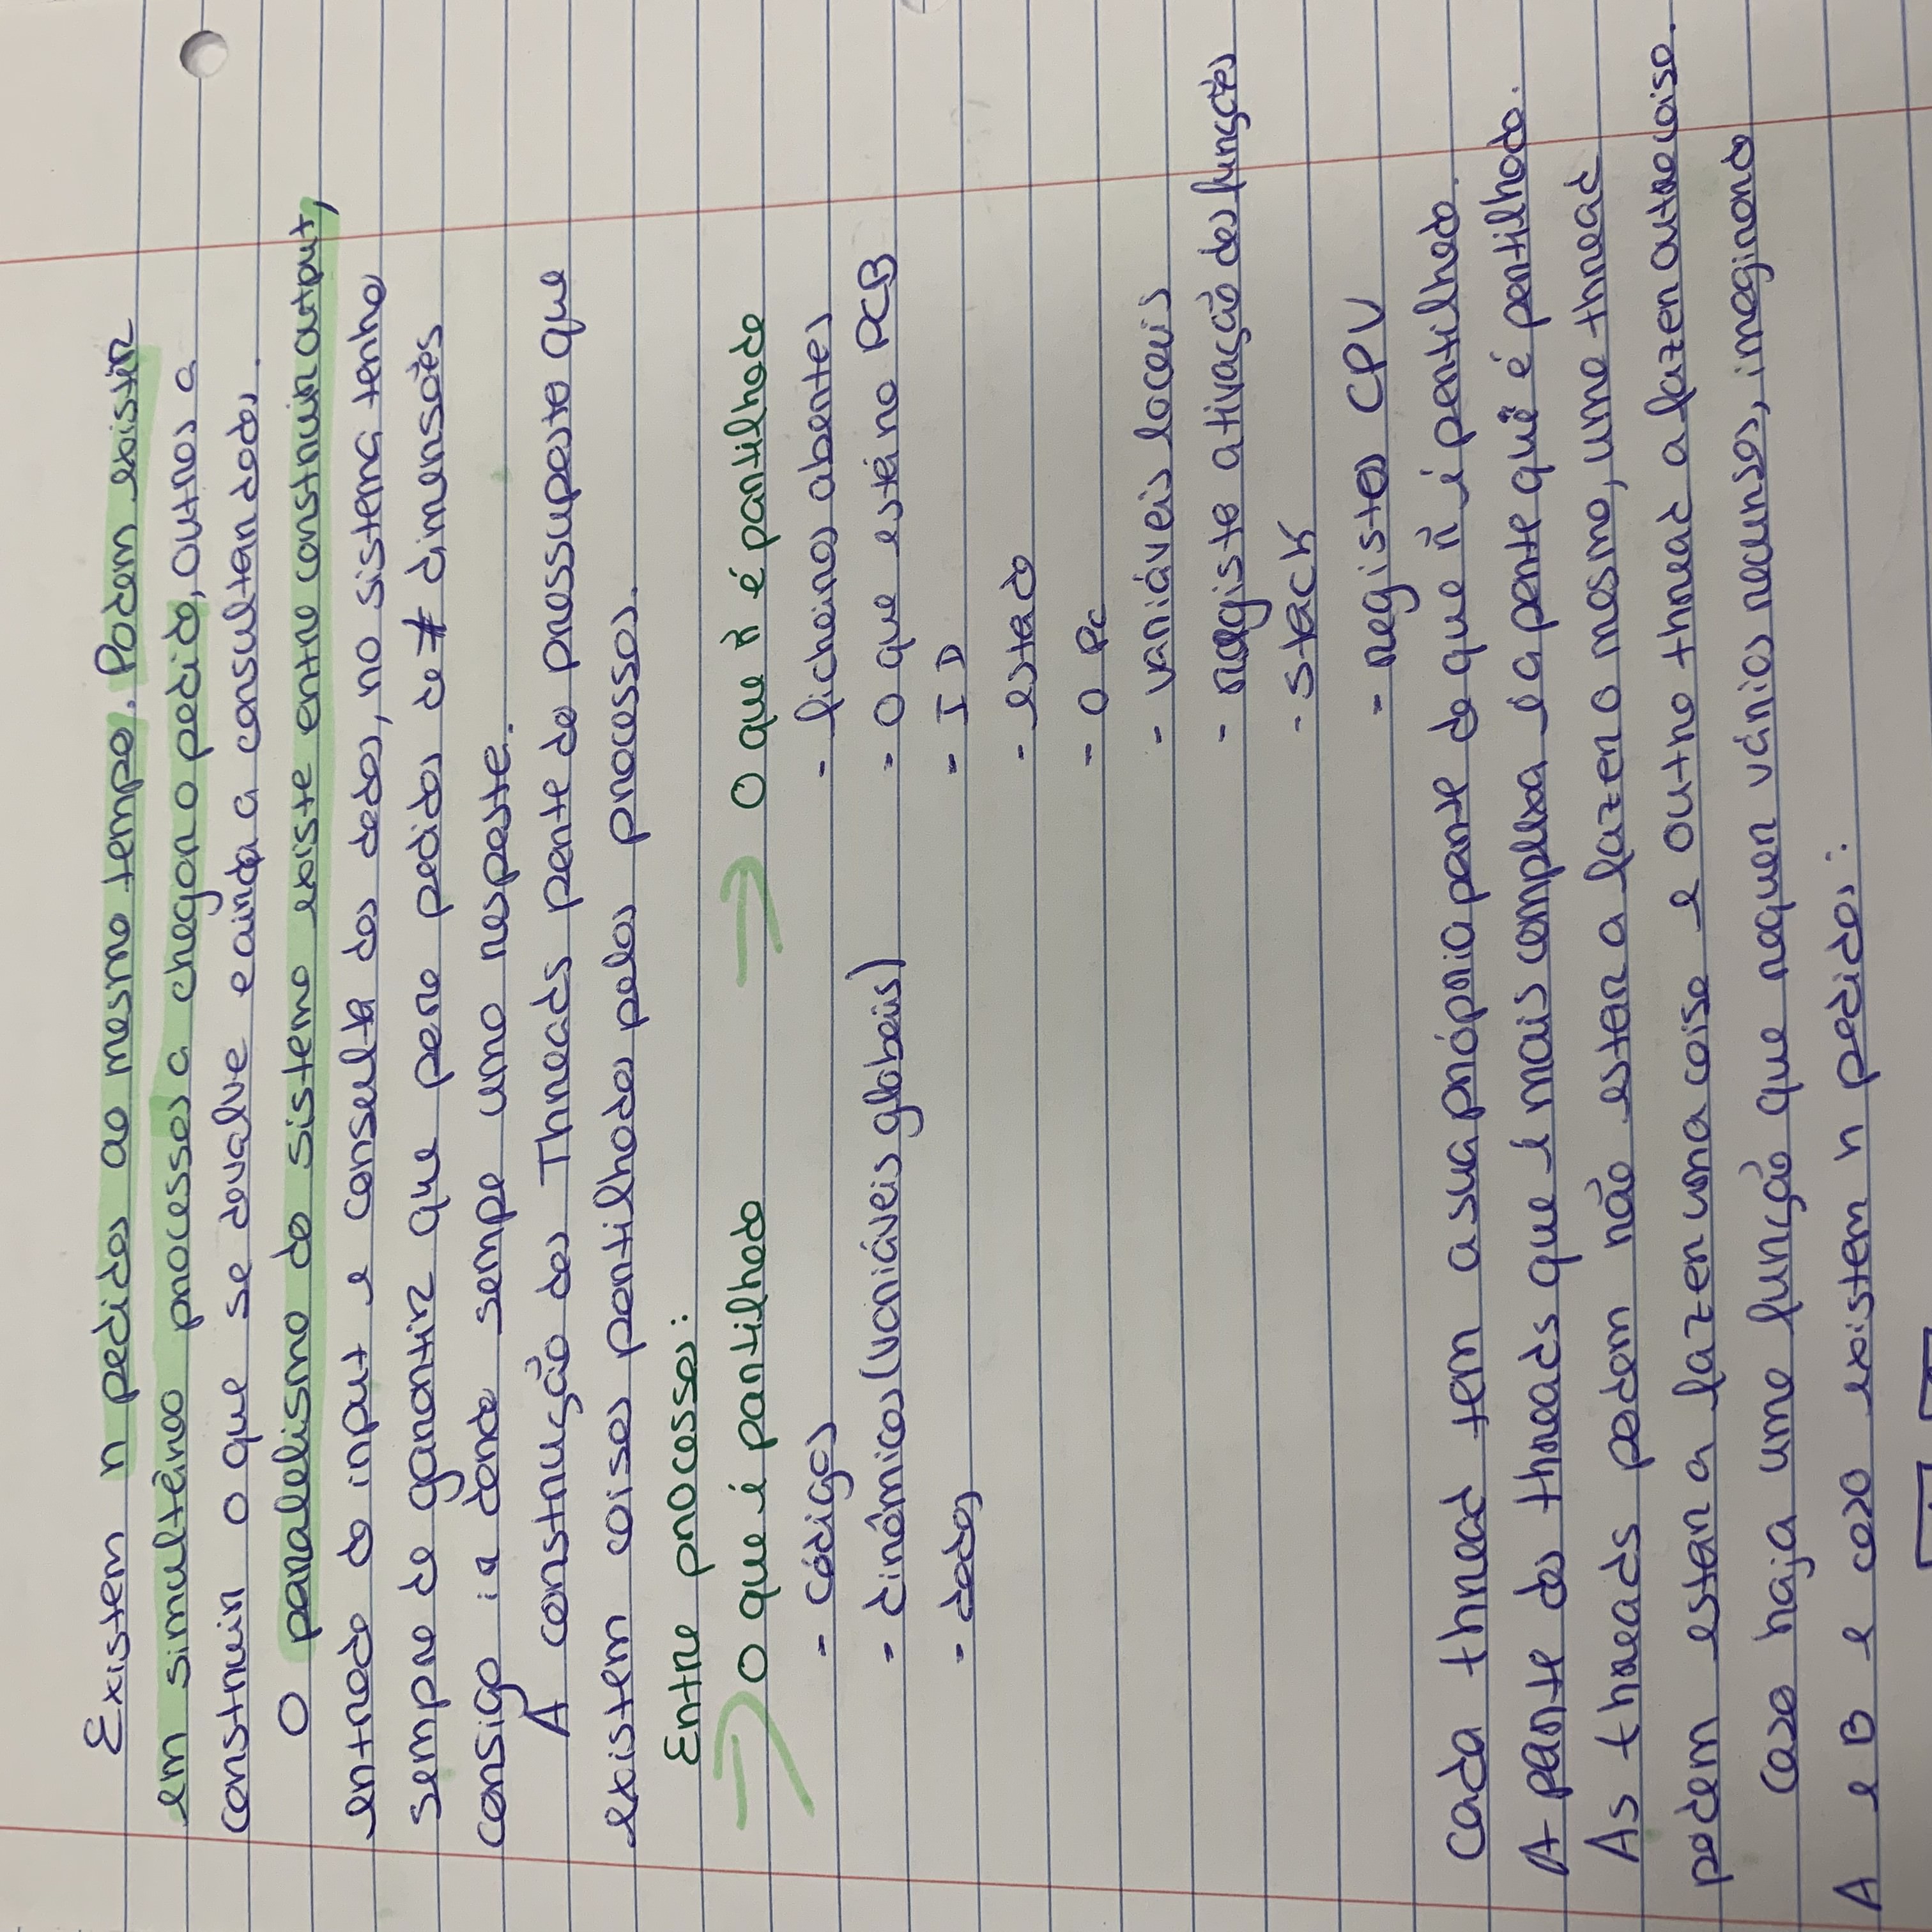 Existem n pedidos ao mesmo tempo. Podem existir
em simultâneo processos a chegar o pedido, outros a
construir o que se devolve e ainda a consultar dados.
O paralelismo do sistema existe entre construir output,
entrada do input e consulta dos dados, no sistema tenho
sempre de garantir que para pedidos de ≠ dimensões
consigo ir dando sempe uma resposta.
A construção das Threads parte do pressuposto que
existem coisas partilhadas pelos processos.
Entre processos:
O que é partilhado
- códigos
- dinâmicos (variáveis globais)
- dados
O que ñ é partilhado
- ficheiros abertos
- O que está no PCB
- ID
- estado
- O Pc
- variáveis locais
- registo ativação das funções
- stack
- registos CPU
Cada thread tem a sua própria parte do que ñ é partilhado.
A parte das threads que é mais complexa é a parte que é partilhado.
As threads podem não estar a fazer o mesmo, uma thread
podem estar a fazer uma coisa e outro thread a fazer outra coisa.
Caso haja uma função que requer vários recursos, imaginando
A e B e caso existem n pedidos: